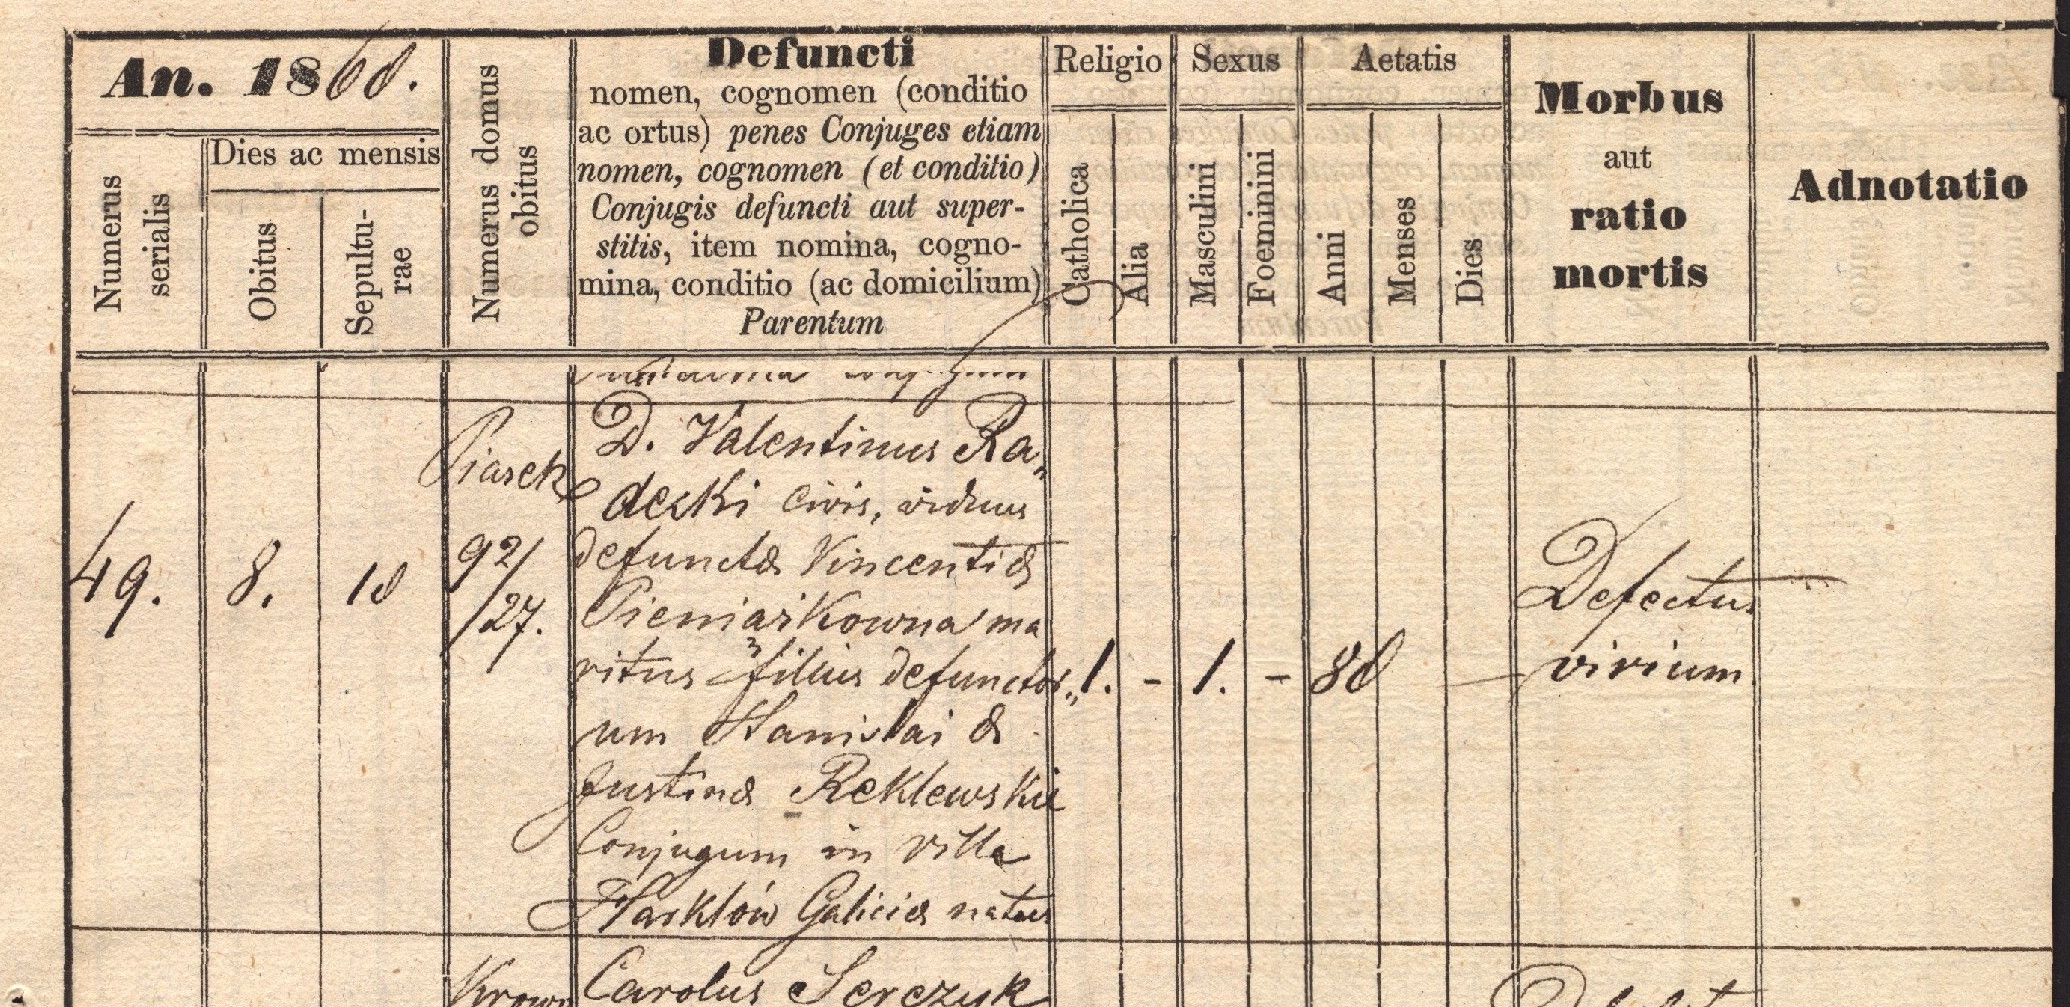 An. 1860.
Numerus serialis
Dies ac mensis
Obitus
Sepultu-
rae
Numerus domus
obitus
Defuncti
nomen, cognomen (conditio
ac ortus) penes Conjuges etiam
nomen, cognomen (et conditio)
Conjugis defuncti aut super-
stitis, item nomina, cogno-
mina, conditio (ac domicilium)
Parentum
Religio
Catholica
Alia
Sexus
Masculini
Foeminini
Aetatis
Anni
Menses
Dies
Morbus
aut
ratio
mortis
Adnotatio
49.
8.
10
Piasek
92/
/27.
D. Valentinus Ra„
deski civis, viduus
defunctæ Vincentiæ
Pieniażkowna ma
ritus filius defunctor„
um Stanislai &
Justinæ Reklewskie
Conjugum in villa
Harklów Galiciæ natus
1. - 1. - 80
Defectus
virium
Carolus Serczyk